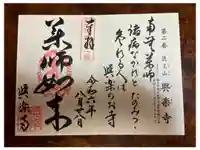 第二番 医王山 與楽寺
南無薬師
諸病なかれと たのみつゝ
まいれる人も
與楽のお寺
奉拝
令和六年八月八日
薬師如来
與楽寺